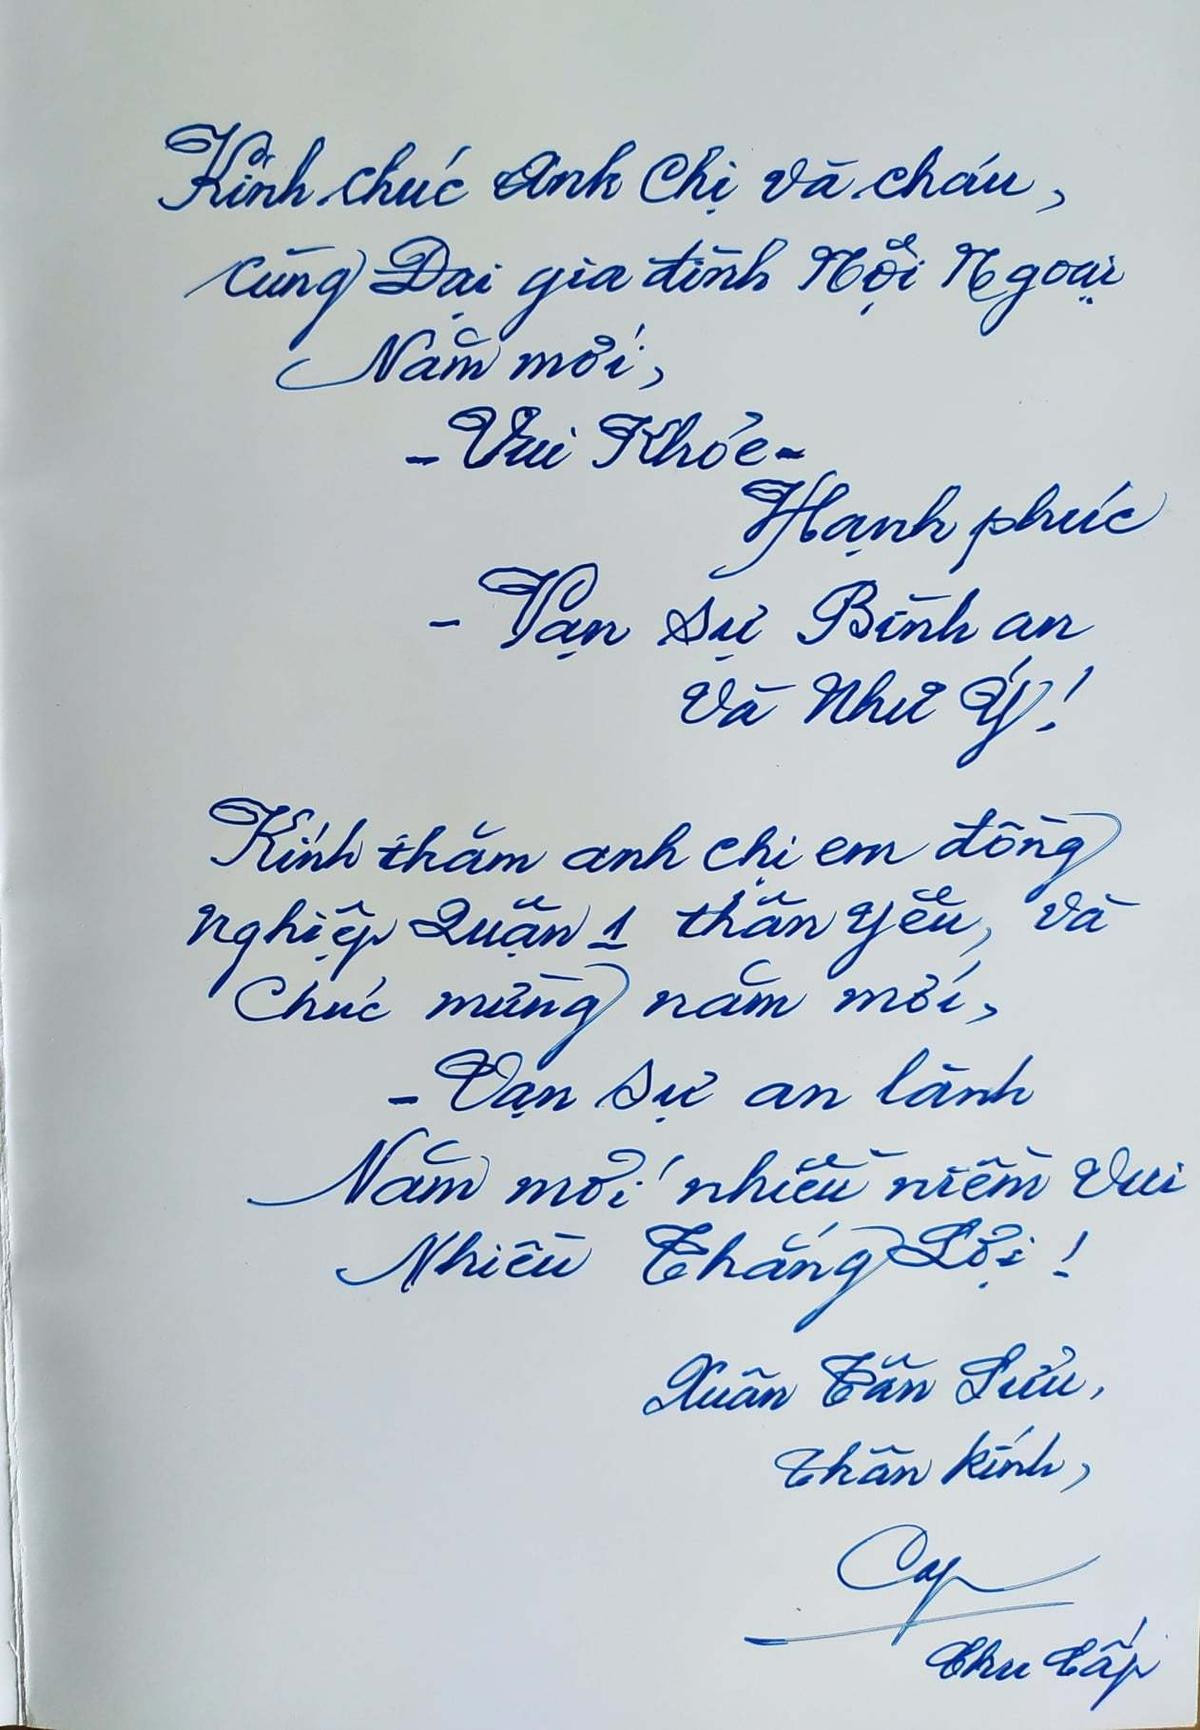 Kính chúc Anh Chị và cháu,
cùng Đại gia đình Nội Ngoại
Năm mới,
- Vui Khỏe -
Hạnh phúc
- Vạn sự Bình an
và Như Ý!
Kính thăm anh chị em đồng
nghiệp Quận 1 thân yêu, và
chúc mừng năm mới,
- Vạn sự an lành
Năm mới nhiều niềm vui
Nhiều Thắng Lợi !
Xuân Tân Sửu,
Thân kính,
Thu Cấp